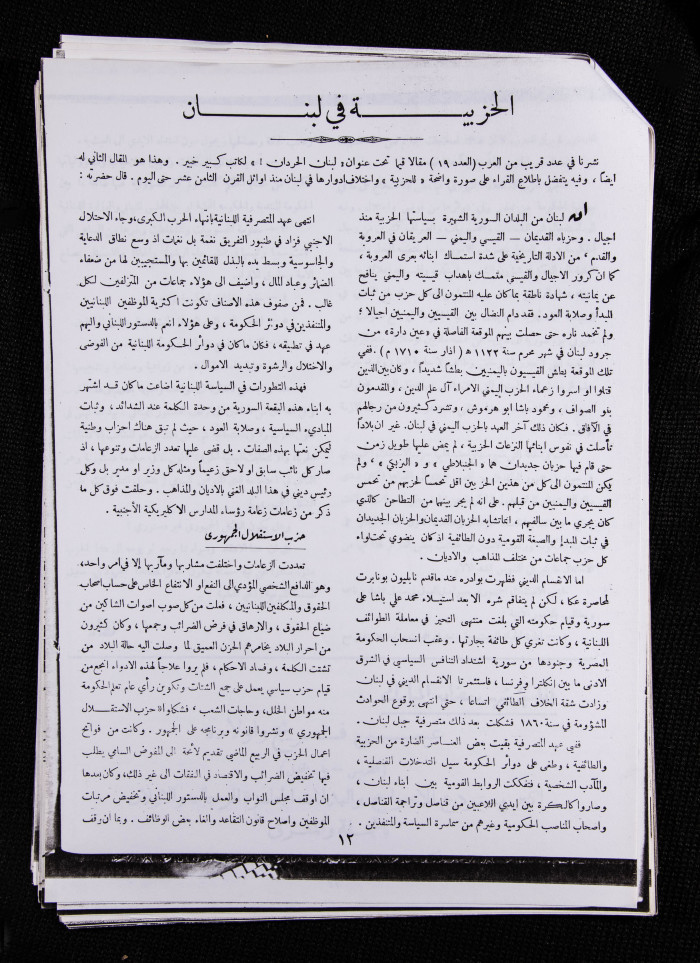 الحزبية في لبنان
نشرنا في عدد قريب من العرب (العدد ١٩) مقالا قيما تحت عنوان «لبنان الحردان !» لكاتب كبير خبير . وهذا هو المقال الثاني له
ايضاً ، وفيه يتفضل باطلاع القراء على صورة واضحة «للحزبية» واختلاف ادوارها في لبنان منذ اوائل القرن الثامن عشر حتى اليوم . قال حضرته :
ان لبنان من البلدان السورية الشهيرة بسياستها الحزبية منذ
اجيال . وحزباه القديمان – القيسي واليمني – العريقان في العروبة
والقدم ، من الادلة التاريخية على شدة استمساك ابنائه بعرى العروبة ،
كما ان كرور الاجيال والقيسي متمسك باهداب قيسيته واليمني ينافح
عن يمانيته ، شهادة ناطقة بما كان عليه المنتمون الى كل حزب من ثبات
المبدأ وصلابة العود . فقد دام النضال بين القيسيين واليمنيين اجيالا ؛
ولم تخمد ناره حتى حصلت بينهم الموقعة الفاصلة في «عين دارة» من
جرود لبنان في شهر محرم سنة ١١٢٢ ه (اذار سنة ١٧١٠ م) . ففي
تلك الموقعة بطش القيسيون باليمنيين بطشاً شديداً ، وكان بين الذين
قتلوا او اسروا زعماء الحزب اليمني الامراء آل علم الدين ، والمقدمون
بنو الصواف ، ومحمود باشا ابو هرموش ، وتشرد كثيرون من رجالهم
في الآفاق . فكان ذلك آخر العهد بالحزب اليمني في لبنان . غير ان بلاداً
تأصلت في نفوس ابنائها النزعات الحزبية ، لم يمض عليها طويل زمن
حتى قام فيها حزبان جديدان هما «الجنبلاطي» و «اليزبكي» ، ولم
يكن المنتمون الى كل من هذين الحزبين اقل تحمساً لحزبهم من تحمس
القيسيين واليمنيين من قبلهم . على انه لم يجر بينهما من التطاحن كالذي
كان يجري ما بين سالفيهم ، انما تشابه الحزبان القديمان والحزبان الجديدان
في ثبات المبدإ والصبغة القومية دون الطائفية اذ كان ينضوي تحت لواء
كل حزب جماعات من مختلف المذاهب والاديان .
اما الانقسام الديني فظهرت بوادره عند ما قدم نابليون بونابرت
لمحاصرة عكا ، لكن لم يتفاقم شره الا بعد استيلاء محمد علي باشا على
سورية وقيام حكومته التي بلغت منتهى التحيز في معاملة الطوائف
اللبنانية ، وكانت تغري كل طائفة بجارتها . وعقب انسحاب الحكومة
المصرية وجنودها من سورية اشتداد التنافس السياسي في الشرق
الادنى ما بين انكلترا وفرنسا ، فاستثمرتا الانقسام الديني في لبنان
وزادت شقة الخلاف الطائفي اتساعا ، حتى انتهى بوقوع الحوادث
المشؤومة في سنة ١٨٦٠ فشكلت بعد ذلك متصرفية جبل لبنان .
ففي عهد المتصرفية بقيت بعض العناصر الضارة من الحزبية
والطائفية ، وطغى على دوائر الحكومة سيل التدخلات القنصلية ،
والمآدب الشخصية ، فتفككت الروابط القومية بين ابناء لبنان ،
وصاروا كالكرة بين ايدي اللاعبين من قناصل وتراجمة القناصل ،
واصحاب المناصب الحكومية وغيرهم من سماسرة السياسة والمتنفذين .
انتهى عهد المتصرفية اللبنانية بانتهاء الحرب الكبرى ، وجاء الاحتلال
الاجنبي فزاد في طنبور التفريق نغمة بل نغمات اذ وسع نطاق الدعاية
والجاسوسية وبسط يده بالبذل للقائمين بها والمستجيبين لها من ضعفاء
الضمائر وعباد المال ، واضيف الى هؤلاء جماعات من المتزلفين لكل
غالب . فمن صفوف هذه الاصناف تكونت اكثرية الموظفين اللبنانيين
والمتنفذين في دوائر الحكومة ، وعلى هؤلاء انعم بالدستور اللبناني واليهم
عهد في تطبيقه ، فكان ما كان في دوائر الحكومة اللبنانية من الفوضى
والاختلال والرشوة وتبديد الاموال .
فهذه التطورات في السياسة اللبنانية اضاعت ما كان قد اشتهر
به ابناء هذه البقعة السورية من وحدة الكلمة عند الشدائد ، وثبات
المبادىء السياسية ، وصلابة العود ، حيث لم تبق هناك احزاب وطنية
ليمكن نعتها بهذه الصفات . بل قضى عليها تعدد الزعامات وتنوعها ، اذ
صار كل نائب سابق او لاحق زعيماً ومثله كل وزير او مدير بل وكل
رئيس ديني في هذا البلد الغني بالاديان والمذاهب . وحلقت فوق كل ما
ذكر من زعامات زعامة رؤساء المدارس الاكليريكية الأجنبية .
حزب الاستقلال الجمهوري
تعددت الزعامات واختلفت مشاربها ومآربها الا في امر واحد ،
وهو الدافع الشخصي المؤدي الى النفع او الانتفاع الخاص على حساب اصحاب
الحقوق والمكلفين اللبنانيين ، فعلت من كل صوب اصوات الشاكين من
ضياع الحقوق ، والارهاق في فرض الضرائب وجمعها ، وكان كثيرون
من احرار البلاد يخامرهم الحزن العميق لما وصلت اليه حالة البلاد من
تشتت الكلمة ، وفساد الاحكام ، فلم يروا علاجاً لهذه الادواء انجع من
قيام حزب سياسي يعمل على جمع الشتات وتكوين رأي عام تعلم الحكومة
منه مواطن الخلل ، وحاجات الشعب ، فشكلوا «حزب الاستقلال
الجمهوري» ونشروا قانونه وبرنامجه على الجمهور . وكانت من فواتح
اعمال الحزب في الربيع الماضي تقديم لائحة الى المفوض السامي يطلب
فيها تخفيض الضرائب والاقتصاد في النفقات الى غير ذلك ، وكان بعدها
ان اوقف مجلس النواب والعمل بالدستور اللبناني وتخفيض مرتبات
الموظفين واصلاح قانون التقاعد والغاء بعض الوظائف . وبما ان وقف
١٢